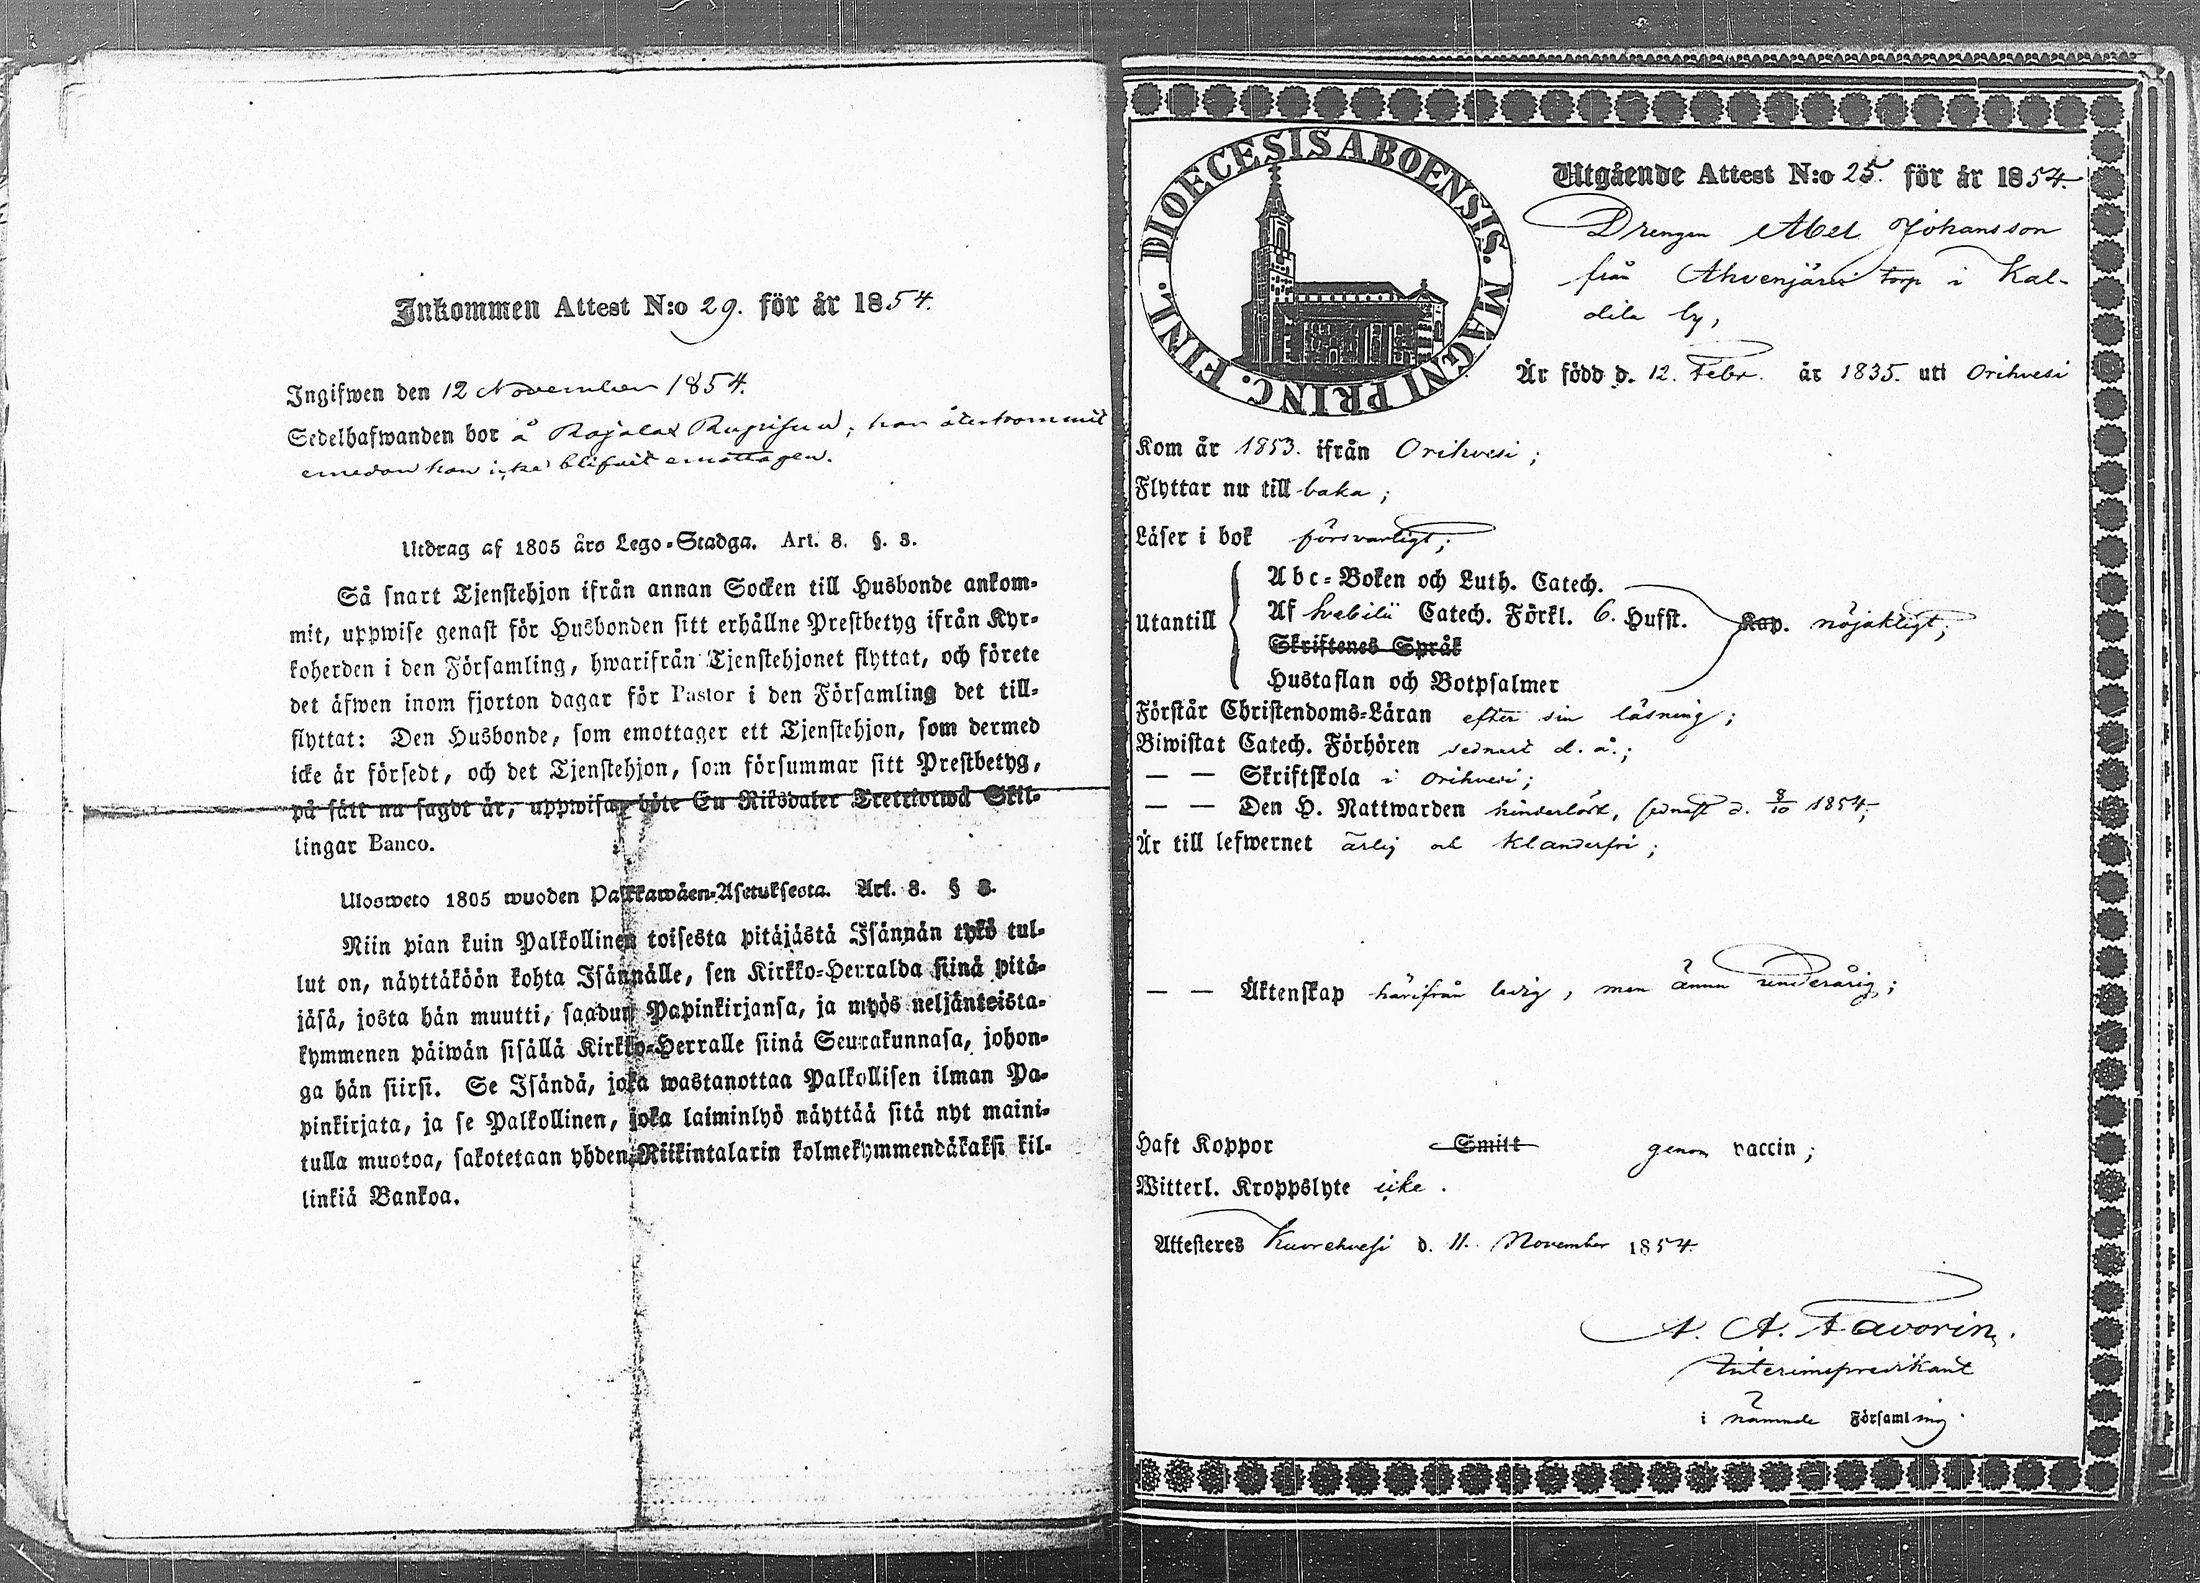 Inkommen Attest N:o 29. för år 1854.
Ingifwen den 12 November 1854.
Sedelhafwanden bor å har återkommit
emedan han icke blifvit emottagen.
Utdrag af 1805 års Lego-Stadga. Art. 8. §. 3.
Så snart Tjenstehjon ifrån annan Socken till Husbonde ankom-
mit, uppwise genast för Husbonden sitt erhållne Prestbetyg ifrån Kyr-
koherden i den Församling, hwarifrån Tjenstehjonet flyttat, och förete
det äfwen inom fjorton dagar för Pastor i den Församling det till-
flyttat: Den Husbonde, som emottager ett Tjenstehjon, som dermed
icke är försedt, och det Tjenstehjon, som försummar sitt Prestbetyg,
på sätt nu sagdt är, uppwisa, böte En Riksdaler Trettiotwå Skil-
lingar Banco.
Ulosweto 1805 wuoden Palkkawäen-Asetuksesta. Art. 8. § 3.
Niin pian kuin Palkollinen toisesta pitäjästä Isännän tykö tul-
lut on, näyttäköön kohta Isännälle, sen Kirkko-Herralda siinä pitä-
jäsä, josta hän muutti, saadun Papinkirjansa, ja myös neljäntoista-
kymmenen päiwän sisällä Kirkko-Herralle siinä Seurakunnasa, johon-
ga hän siirsi. Se Isändä, joka wastanottaa Palkollisen ilman Pa-
pinkirjata, ja se Palkollinen, joka laiminlyö näyttää sitä nyt maini-
tulla muotoa, sakotetaan yhden Riikintalarin kolmekymmendäkaksi kil-
linkiä Bankoa.
DIOECESIS ABOENSIS. MAGNI PRINC. FINL.
Utgående Attest N:o 25. för år 1854.
Drengen Abel Johansson
från Ahvenjärvi torp i Kal-
dila by,
Är född d. 12. Febr. år 1835. uti Orihvesi
Kom år 1853. ifrån Orihvesi;
Flyttar nu till baka;
Läser i bok försvarligt;
Utantill
Abc-Boken och Luth. Catech.
Af Svebilii Catech. Förkl. 6. Hufst. Kap. nöjaktigt;
Skriftenes Språk
Hustaflan och Botpsalmer
Förstår Christendoms-Läran efter sin läsning;
Biwistat Catech. Förhören sednast d. å.;
— — Skriftskola i Orihvesi;
— — Den H. Nattwarden hinderlöst, sednast d. 8/10 1854;
Är till lefwernet ärlig och klanderfri;
— — Äktenskap härifrån ledig, men ännu underårig;
Haft Koppor Smitt genom vaccin;
Witterl. Kroppslyte icke.
Attesteres Kuorehvesi d. 11. November 1854.
A. A. Favorin.
Interimspredikant
i nämnde Församling.